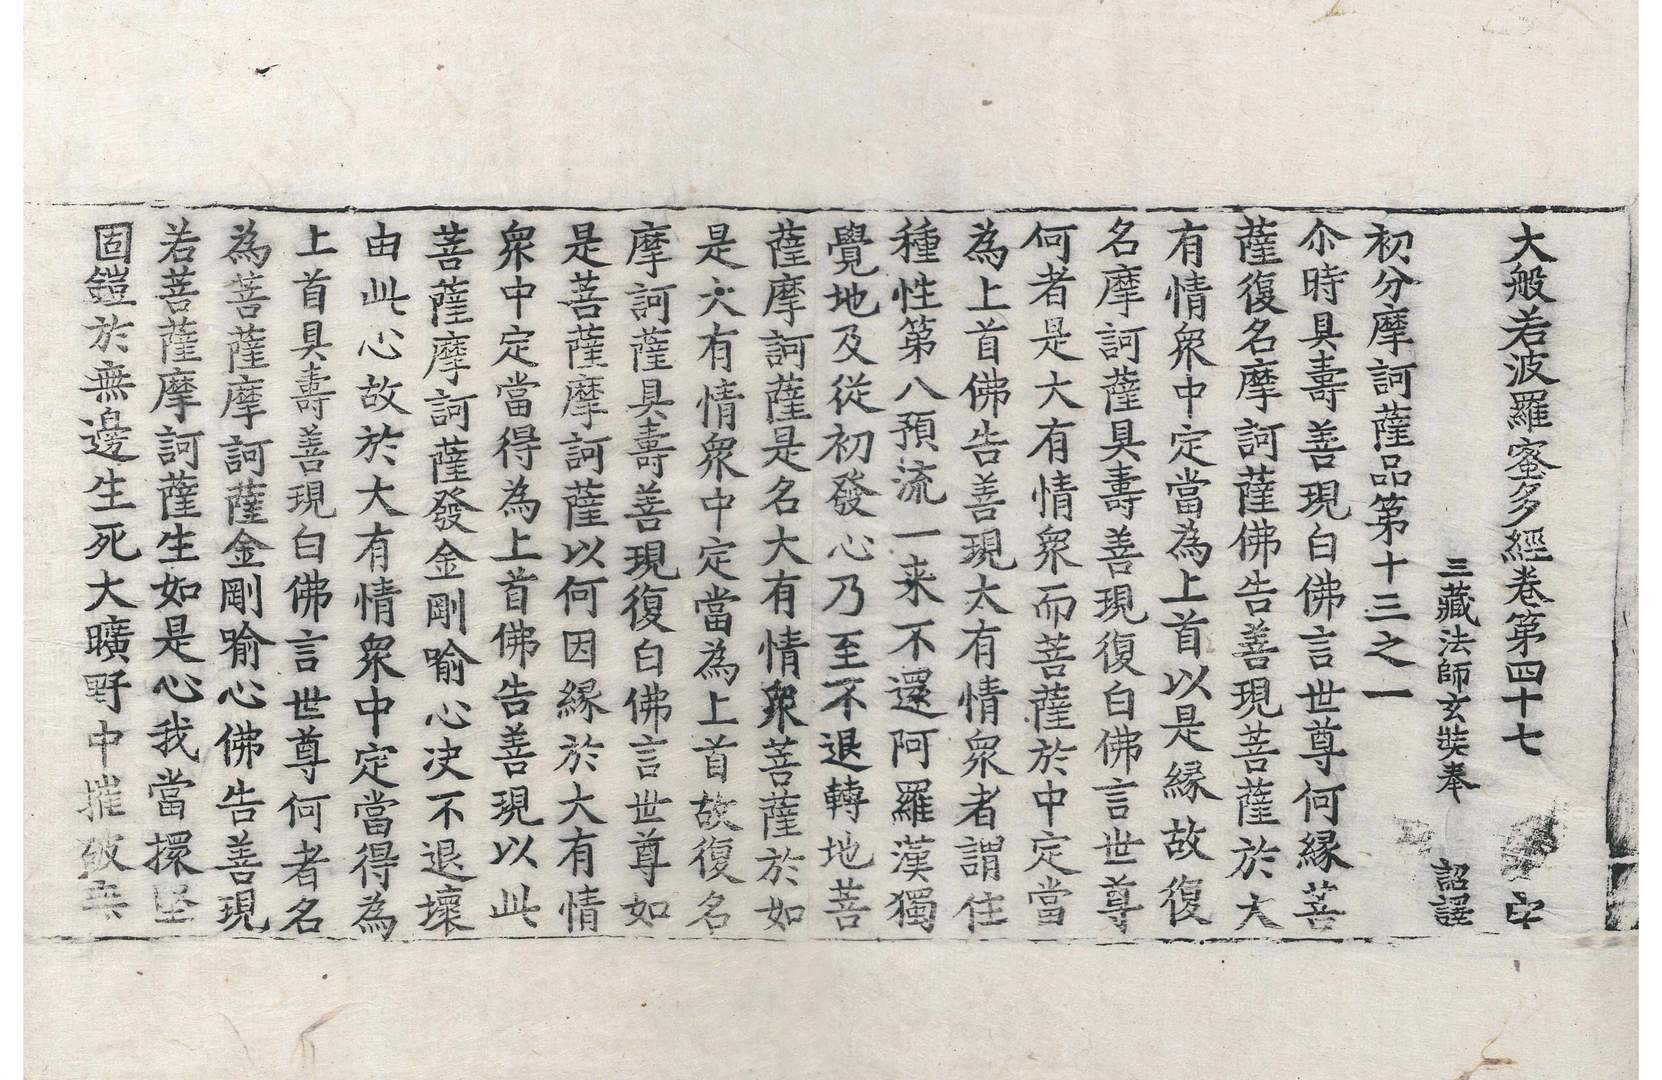 大般若波羅蜜多經卷第四十七
三藏法師玄奘奉 詔譯
初分摩訶薩品第十三之一
尒時具壽善現白佛言世尊何緣菩
薩復名摩訶薩佛告善現菩薩於大
有情衆中定當為上首以是緣故復
名摩訶薩具壽善現復白佛言世尊
何者是大有情衆而菩薩於中定當
為上首佛告善現大有情衆者謂住
種性第八預流一来不還阿羅漢獨
覺地及從初發心乃至不退轉地菩
薩摩訶薩是名大有情衆菩薩於如
是大有情衆中定當為上首故復名
摩訶薩具壽善現復白佛言世尊如
是菩薩摩訶薩以何因緣於大有情
衆中定當得為上首佛告善現以此
菩薩摩訶薩發金剛喻心决不退壞
由此心故於大有情衆中定當得為
上首具壽善現白佛言世尊何者名
為菩薩摩訶薩金剛喻心佛告善現
若菩薩摩訶薩生如是心我當擐堅
固鎧於無邊生死大曠野中摧破無